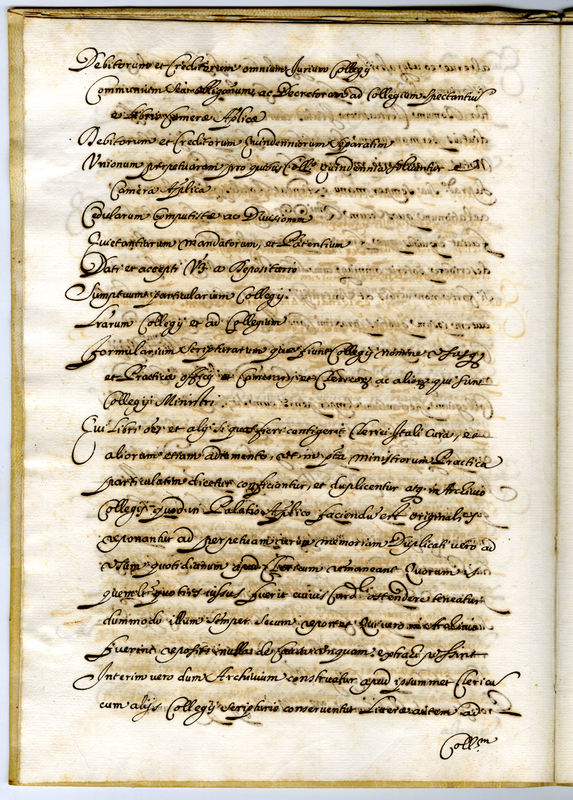 Debitorum et Creditorum omnium Jurium Collegij
Communium ac Decretorum ad Collegium spectantiũ
Camerae Aplicae
Debitorum et Creditorum Quindenniorum separatim
Unionum perpetuarum pro quibus Quindennia solvuntur
Camera Aplica
Cedularum Computistae ac Divisionum
Quietantiarum mandatorum, et Patentium
Dati et accepti à Depositario
Sumptuum particularium Collegij
Lrarum Collegij et ad Collegium
Formularium Scripturarum quae fiunt Collegij nomine
et Practicae officij et Clericorꝫ ac aliorꝫ qui sunt
Collegij Ministri
Qui Libri oẽs et alij si quos fieri contigerit Clerici Itali Cura, et
aliorum etiam adiumento, ut in ministrorum Practica
particulatim dicetur conficiantur, et duplicentur atqꝫ in Archivio
Collegij quod in Palatio Aplico faciendũ est originales
reponantur ad perpetuam rei memoriam Duplicati vero ad
usum quotidianum apud Clericum remaneant Quorum
quemlibet quoties iussus fuerit cuivis Card. ostendere teneatur
dummodo illum semper secum reportet Qui vero in Archivio
fuerint repositi nulla de causa unquam extrahi possint
Interim vero dum Archivium construatur apud ipsummet Clericũ
cum alijs Collegij scripturis conserventur Literae autem ad
Coll.m